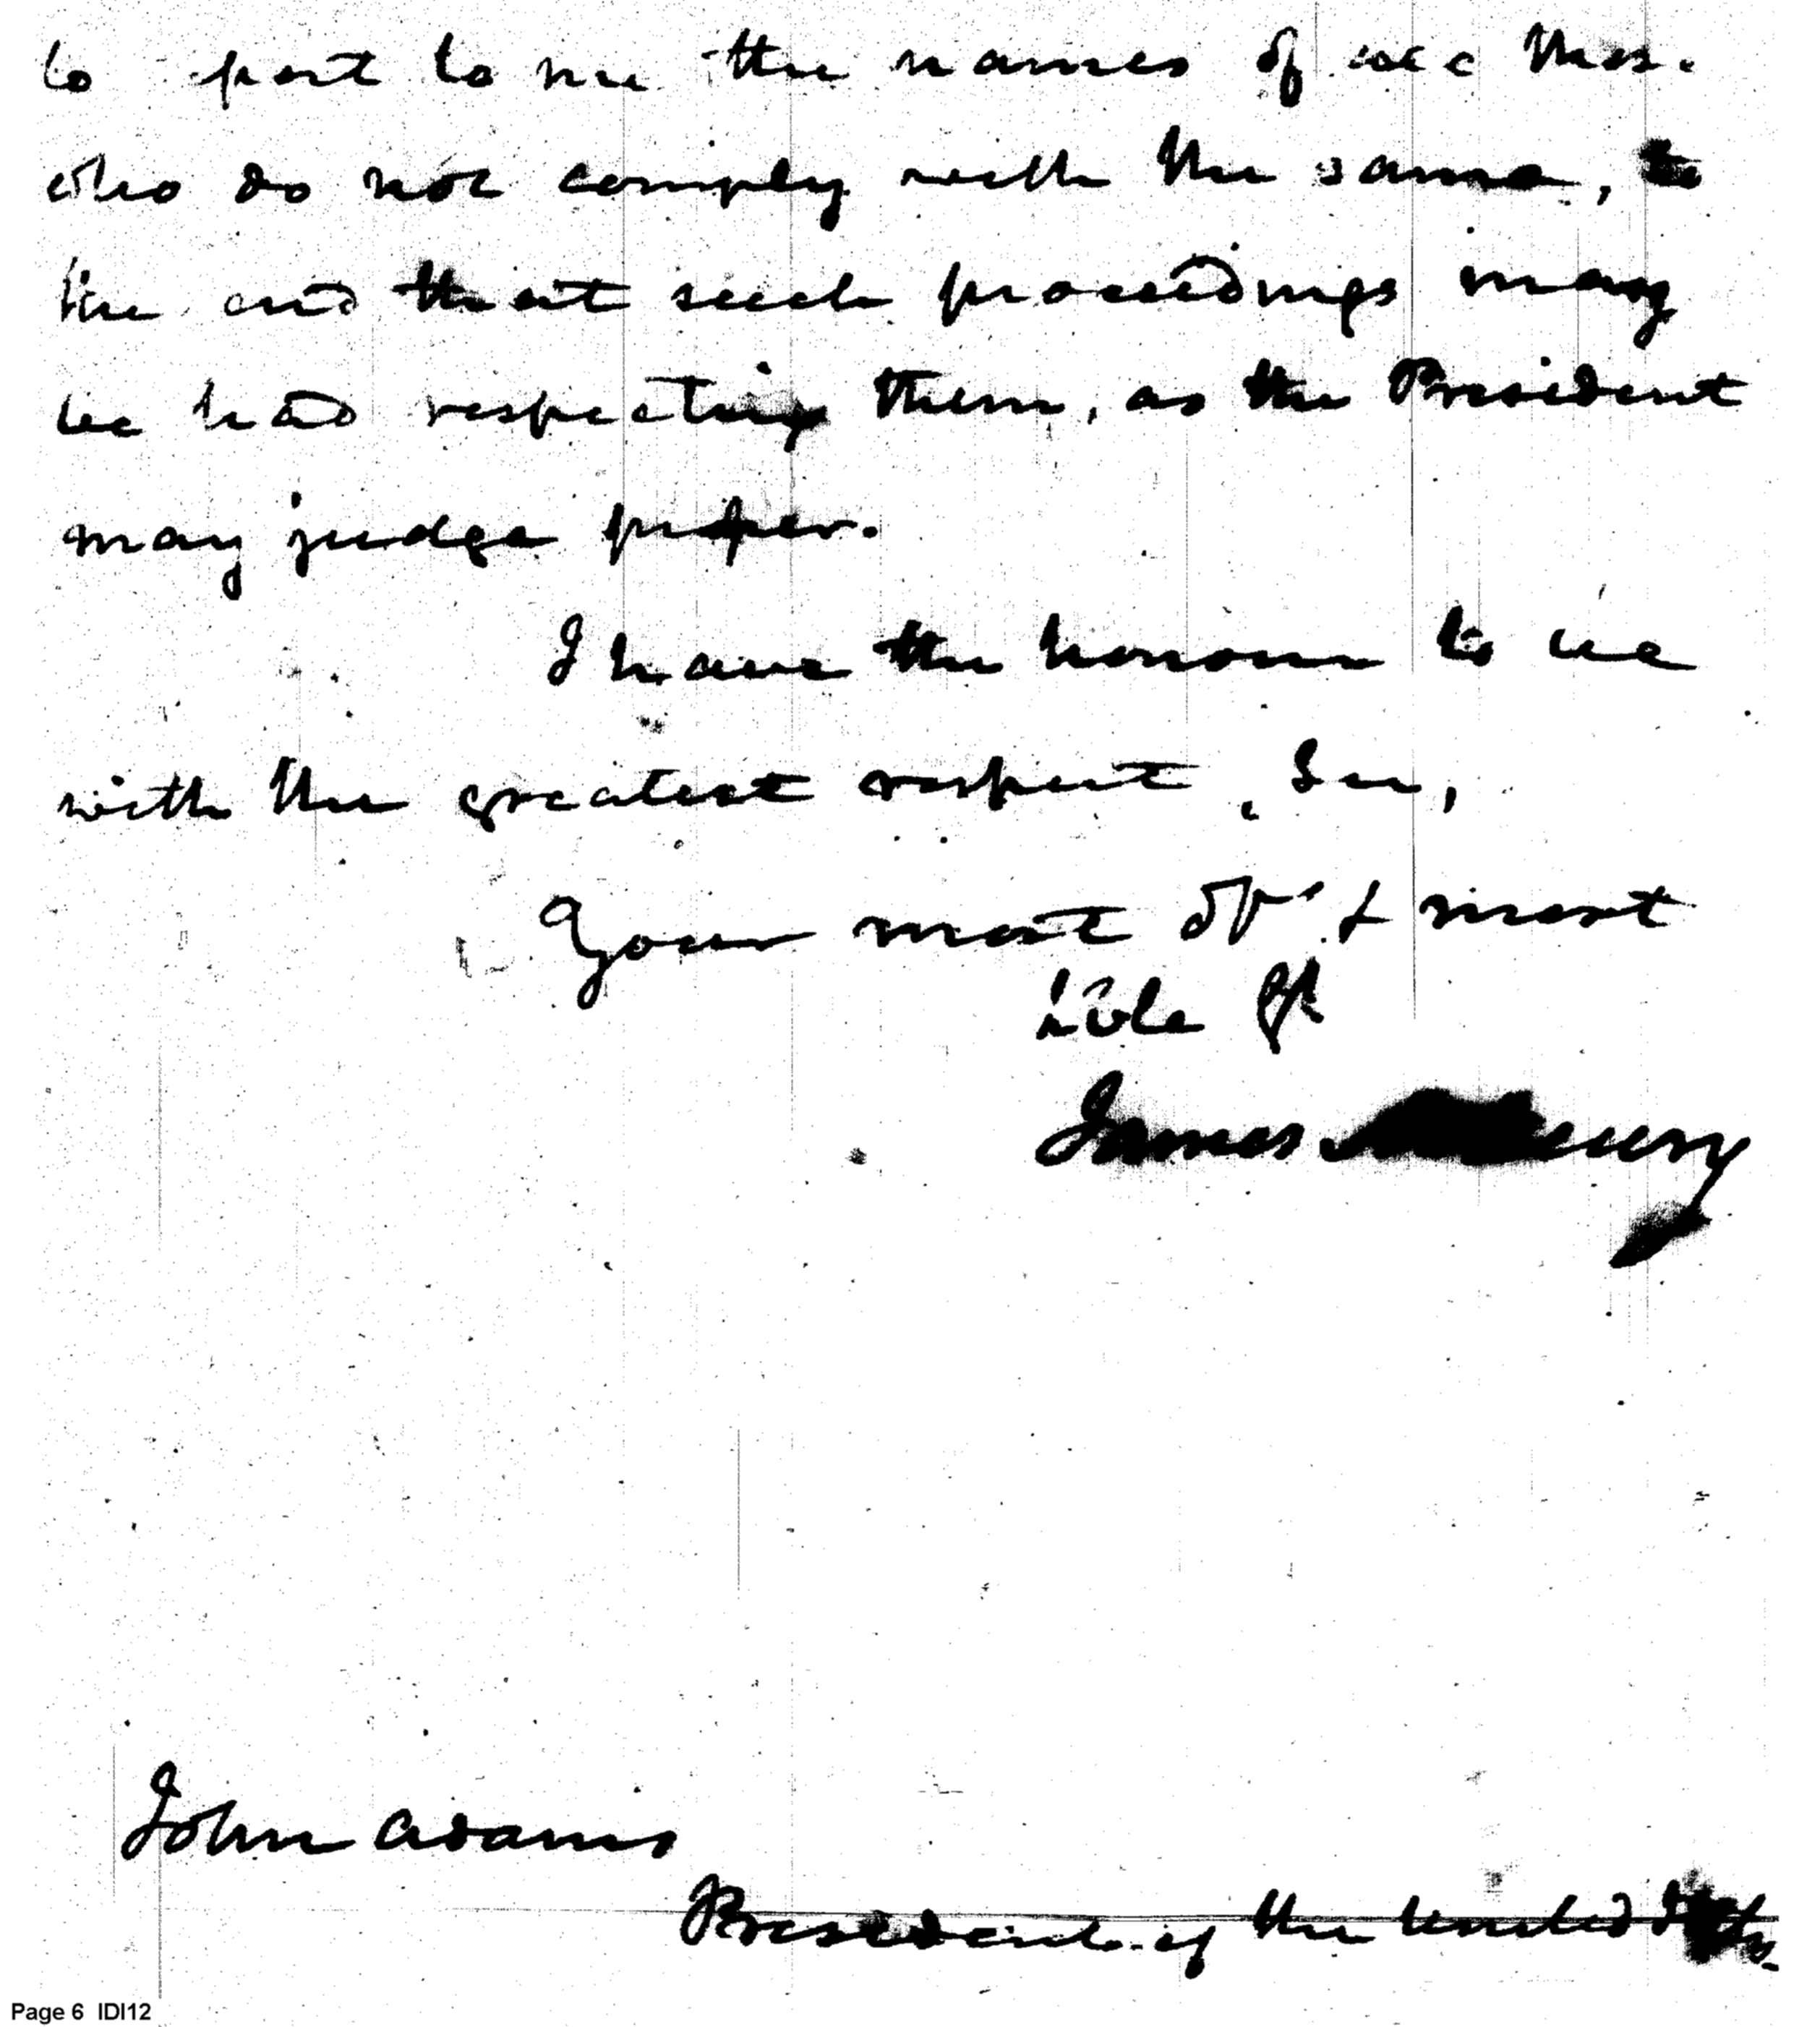 to port to me the names of all those
who do not comply with the same, to
the end that such proceedings may
be had respecting them, as the President
may judge proper.
I have the honour to be
with the greatest respect, Sir,
Your most obt & most
hble St
James McHenry
John Adams
President of the United States
Page 6 IDI12